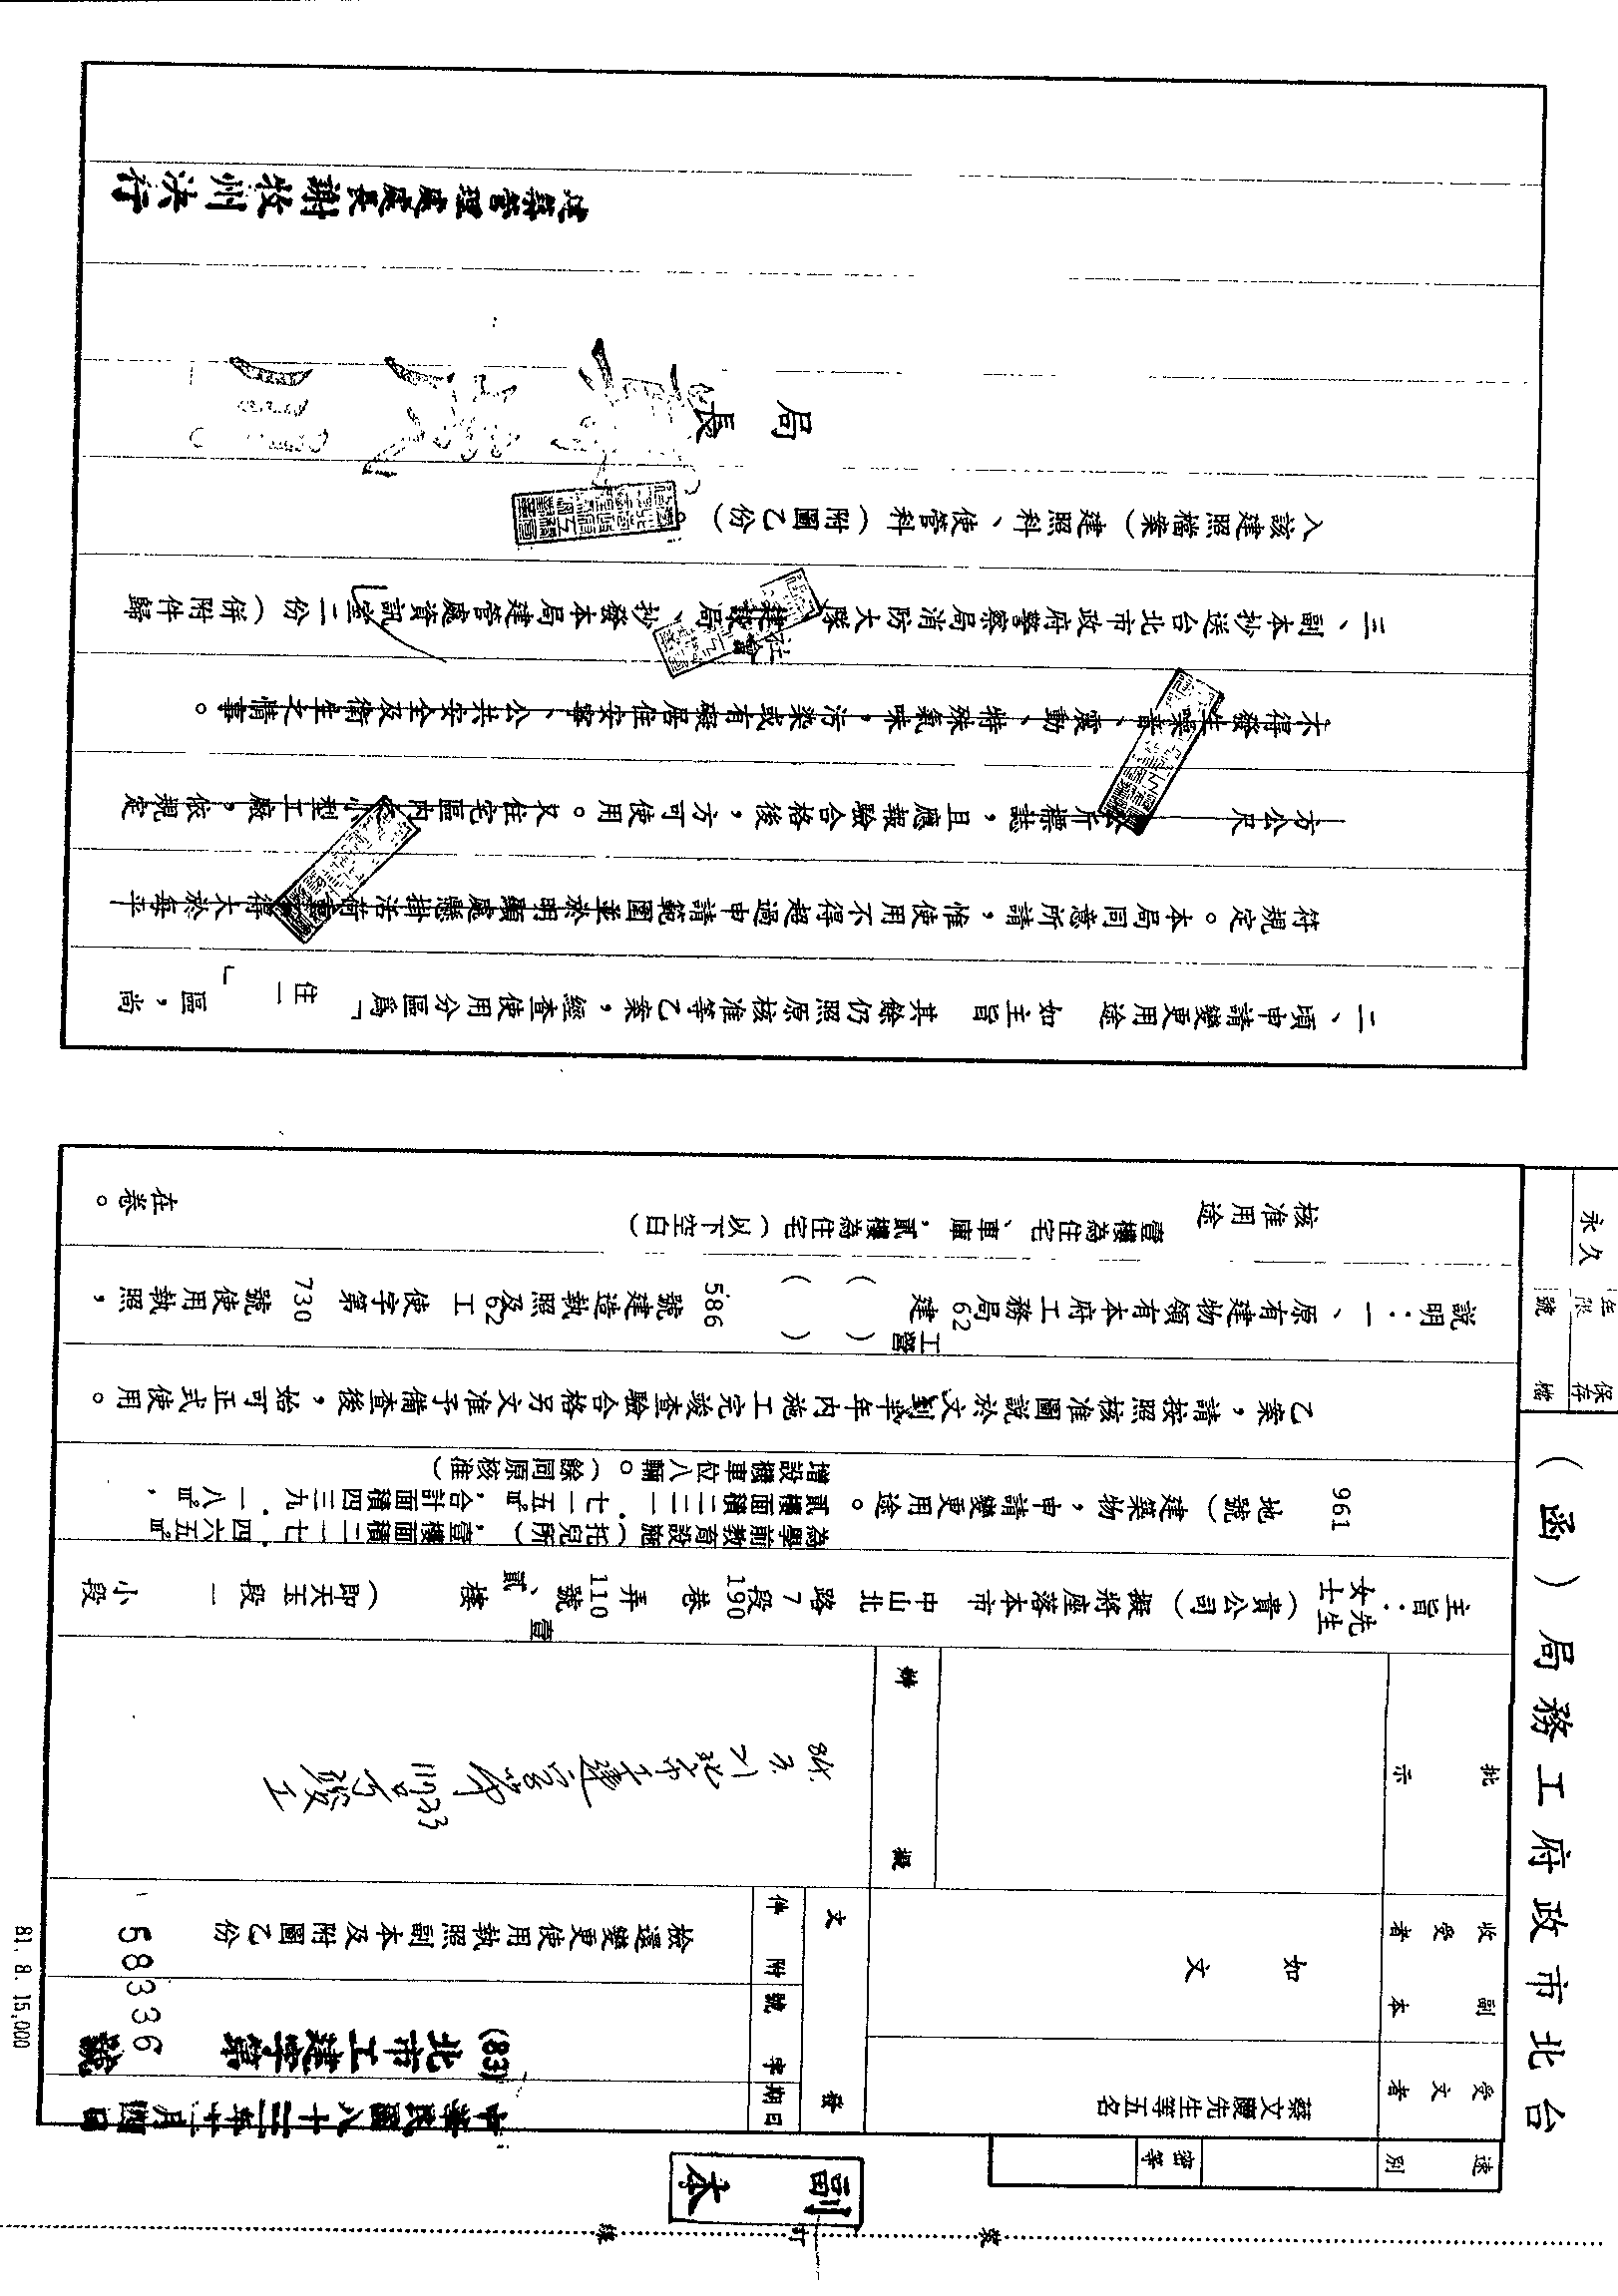 台北市政府工務局（函）
保存年限
永久
檔號
速別
密等
受文者
蔡文隴先生等五名
副本收受者
如文
批示
擬辦
發文
日期
中華民國八十三年十一月四日
字號
(83)北市工建字第58336號
附件
檢還變更使用執照副本及附圖乙份
主旨：先生女士（貴公司）擬將座落本市中山北路7段190巷弄110號壹、貳樓（即天玉段一小段
961地號）建築物，申請變更用途。
為學前教育設施（托兒所），壹樓面積二一七．四六五㎡，
貳樓面積二二一．七一五㎡，合計面積四三九．一八㎡，
增設機車位八輛。（餘同原核准）
乙案，請按照核准圖說於文到半年內施工完竣查驗合格另文准予備查後，始可正式使用。
說明：一、原有建物領有本府工務局62建（工營）（）586號建造執照及62工使字第730號使用執照，
核准用途壹樓為住宅、車庫，貳樓為住宅（以下空白）在卷。
二、頃申請變更用途如主旨其餘仍照原核准等乙案，經查使用分區為「住一」區，尚
符規定。本局同意所請，惟使用不得超過申請範圍並於明顯處懸掛活荷重得大於每平
方公尺公斤標誌，且應報驗合格後，方可使用。又住宅區內小型工廠，依規定
不得發生噪音、震動、特殊氣味，污染或有礙居住安寧、公共安全及衛生之情事。
三、副本抄送台北市政府警察局消防大隊、社會局、抄發本局建管處資訊室二份（併附件歸
入該建照檔案）建照科、使管科（附圖乙份）。
局長
建築管理處處長謝牧州決行
副本
裝
訂
線
81. 8. 15,000